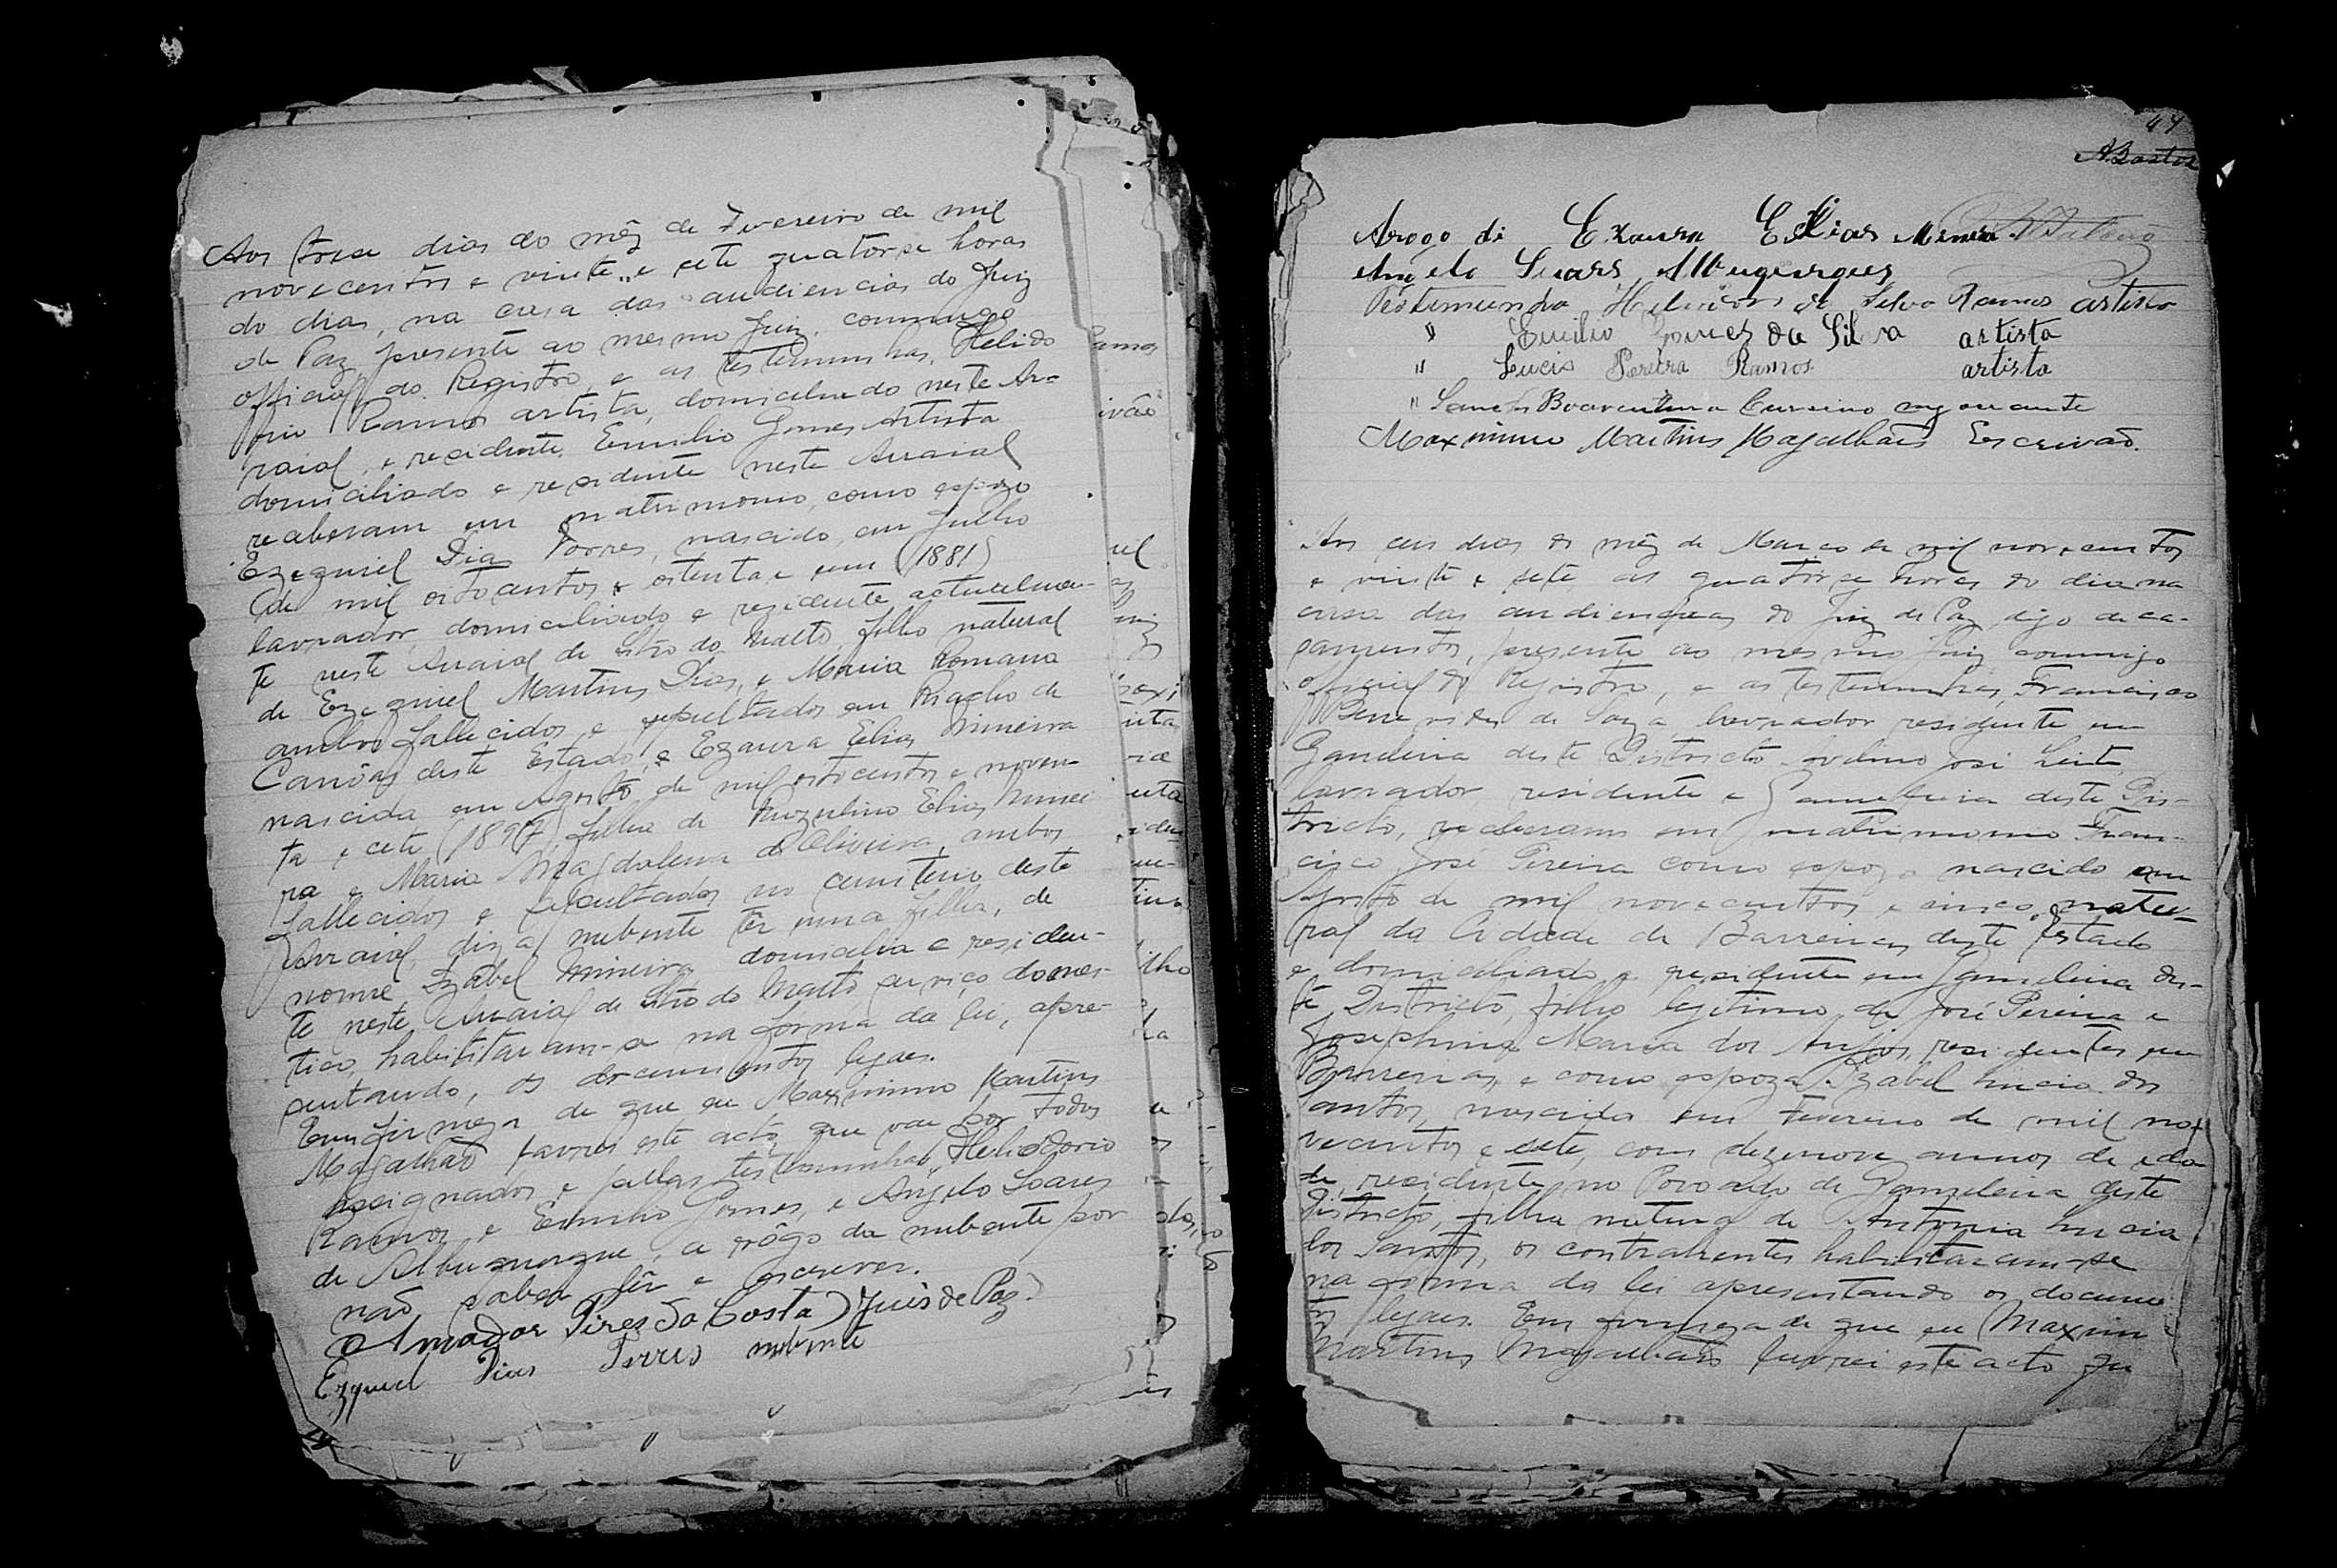 Aos trese dias do mêz de Fevereiro de mil
novecentos e vinte e sete quatorse horas
do dia, na casa das audiencias do Juiz
de Paz, presente ao mesmo Juiz, commigo
official do Registro, e as testemunhas, Helido
rio Ramos artista, domiciliado neste Ar-
raial, e residente, Emilio Gomes Artista
domiciliado e residente neste Arraial
receberam em matrimonio, como espozo
Ezequiel Dias Torres, nascido, em Julho
de mil oitocentos e oitenta e um (1881)
lavrador, domiciliado e residente actualmen-
te neste Arraial de Sitio do Matto, filho natural
de Ezequiel Martins Dias, e Maria Romana
ambos fallecidos, e sepultados em Riacho de
Canôas deste Estado, e Ezaura Elias Mineira
nascida em Agosto de mil oitocentos e noven
ta e cete (1897) filha de Elias Minei
ra e Maria Magdalena de Oliveira, ambos
fallecidos e sepultados no cemiterio deste
Arraial, diz a nubente ter uma filha, de
nome Izabel Mineira domicilia e residen-
te neste Arraial de Sitio do Matto, serviço domes-
tico, habilitaram-se na fórma da lei, apre-
sentando, os documentos legaes.
Em firmeza de que eu Maximino Martins
Magalhaõ lavrei este acto que vae por todos
assignados e pellas testemunhas, Heliodorio
Ramos, e Emilio Gomes, e Angelo Soares
de Albuquerque, a rôgo da nubente por
naõ saber lêr e escrever.
Amador Pires da Costa (Juis de Paz)
Ezequiel Dias Torres nubente
44
A. Bastos
Arogo di Exaura Elias Minera
Angelo Suars Albuquerques
Testemunha da Silva Ramos artista
" Emilio Gomes da Silva artista
" Lucio Pereira Ramos artista
" Boaventura negociante
Maximino Martins Magalhães Escrivaõ.
Aos seis dias do mêz de Março de mil novecentos
e vinte e sete, as quatorse horas do dia na
casa das audiencias do Juiz de Paz, digo de ca-
samentos, presente ao mesmo Juiz commigo
official do Registro, e as testemunhas, Francisco
Benevides de Souza, lavrador residente em
Gameleira deste Districto Avelino José Leite
lavrador, residente e Gameleira deste Dis-
tricto, receberam em matrimonio Fran-
cisco José Pereira como espozo nascido em
Agosto de mil novecentos e cinco, natu-
ral da Cidade de Barreiras deste Estado
e domiciliado e residente em Gameleira des-
te Districto, filho legitimo de José Pereira e
Josephina Maria dos Anjos, residentes em
Barreiras, e como espoza Izabel Lucia dos
Santos, nascida em Fevereiro de mil no-
vecentos e sete, com dezenove annos de eda
de, residente no Povoado de Gameleira deste
Districto, filha natural de Antonia Lucia
dos Santos, os contrahentes habilitaram-se
na forma da lei apresentando os documen
tos legaes. Em firmeza de que eu Maximi
Martins Magalhaõs lavrei este acto que